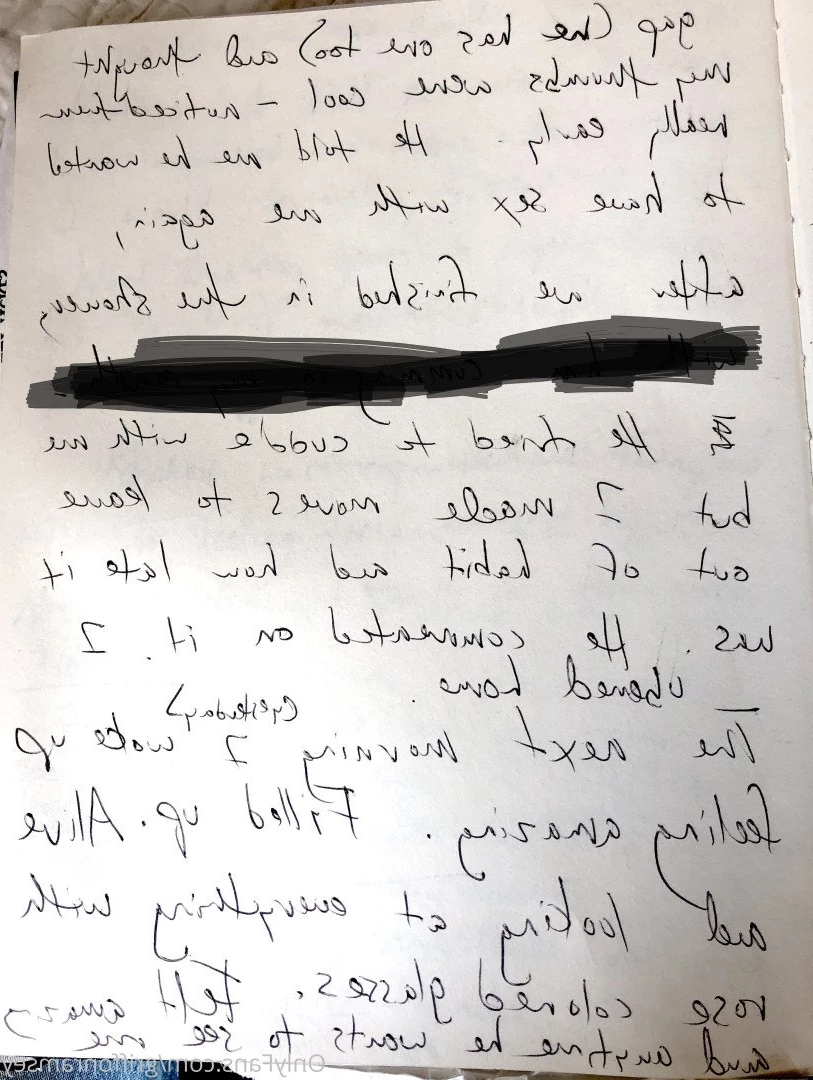 gap (he has one too) and thought
my thumbs were cool - noticed them
really early. He told me he wanted
to have sex with me again,
after we finished in the shower,
He tried to cuddle with me
but I made moves to leave
out of habit and how late it
was. He commented on it. I
ubered home.
(yesterday)
The next morning I woke up
feeling amazing. Filled up. Alive
and looking at everything with
rose colored glasses. Felt amazing
and anytime he wants to see me
OnlyFans.com/griffonramsey